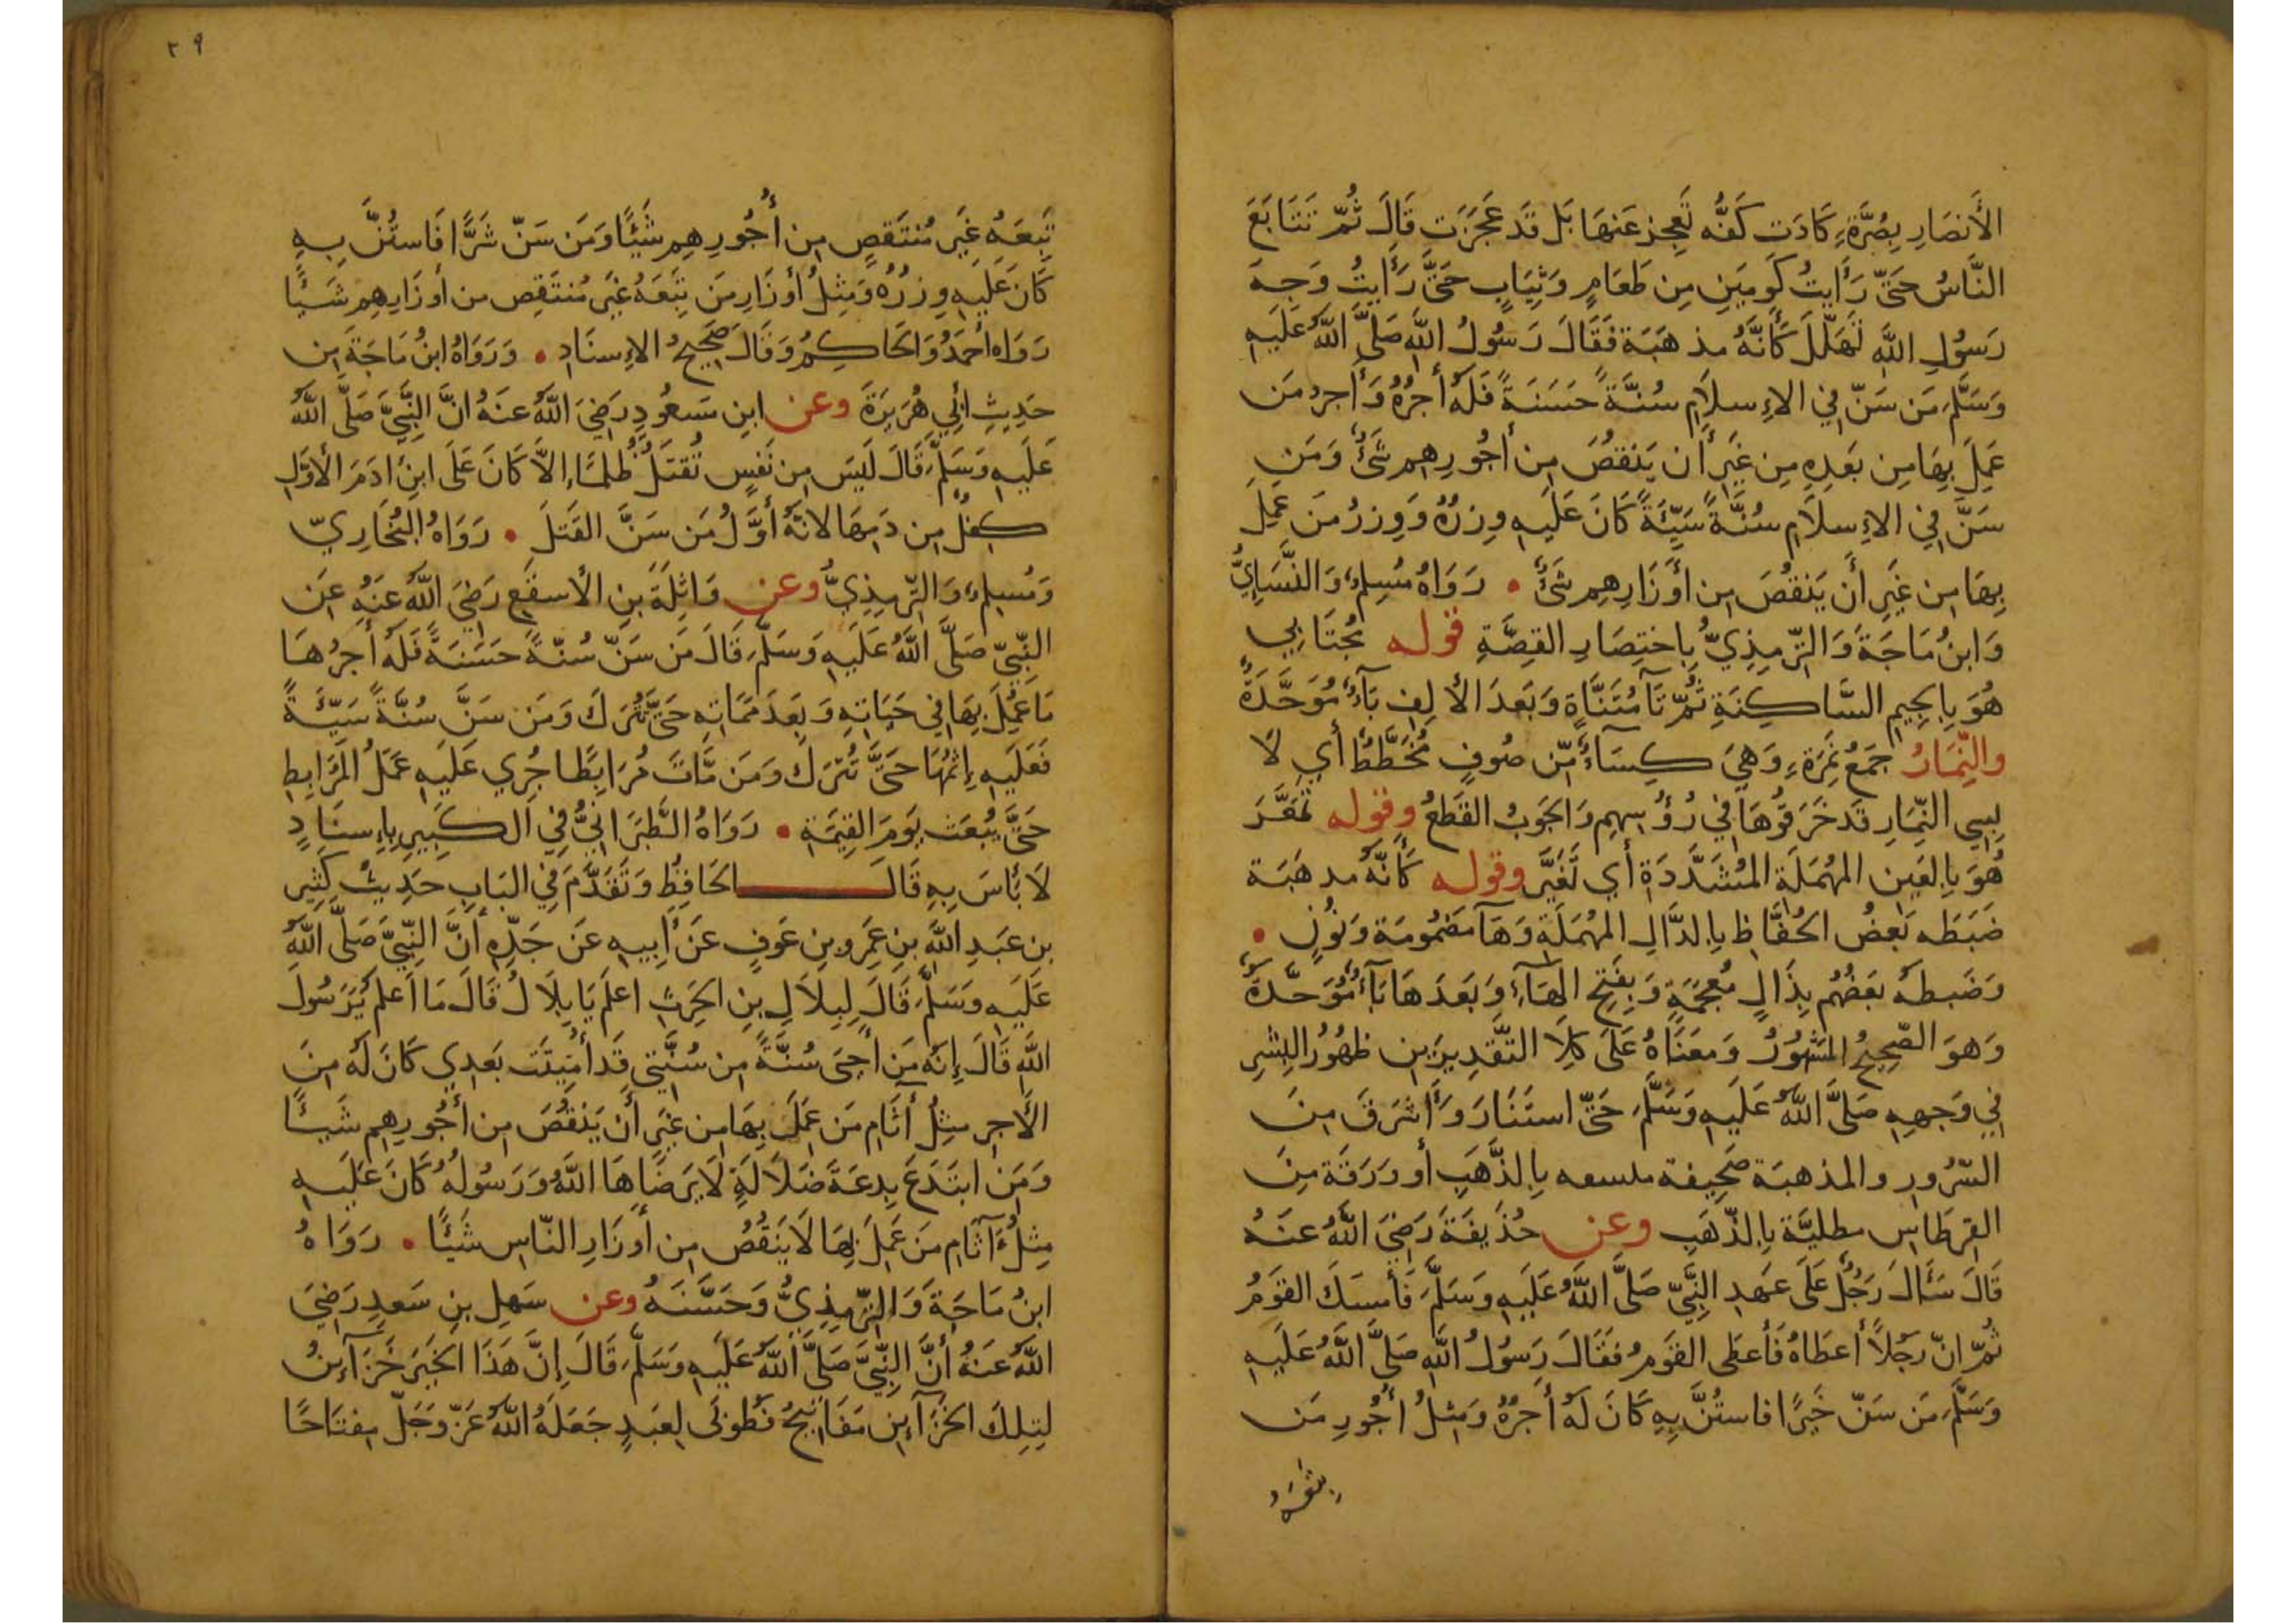 الأَنصَارِ بِصُرَّةٍ كَادَت كَفُّه تَعجِز عَنهَا بَل قَد عَجَزَت قَالَ ثُمّ تَتَابَعَ
النَّاسُ حَتّى رَأَيتُ كَومَينِ مِن طَعَامٍ وَثِيَابٍ حَتَّى رَأَيتُ وَجهَ
رَسُولِ اللَّهِ تَهَلّلَ كَأَنَّهُ مذهَبَة فَقَالَ رَسُولُ اللَّهِ صَلَّى اللَّهُ عَلَيهِ
وَسَلَّمَ مَن سَنّ فِي الإِسلاَمِ سُنَّةً حَسَنَةً فَلَهُ أَجرُهُ وَأَجرُ مَن
عَمِلَ بِهَا مِن بَعدِهِ مِن غَيرِ أَن يَنقُصَ مِن أُجُورِهِم شَئٌ وَمَن
سَنَّ فِي الإِسلاَمِ سُنَّةً سَيِّئَةً كَانَ عَلَيهِ وِزرُهُ وَوِزرُ مَن عَمِلَ
بِهَا مِن غَيرِ أَن يَنقُصَ مِن أَوزَارِهِم شَئٌ • رَوَاهُ مُسلِمٌ وَالنَّسَايِيُّ
وَابنُ مَاجَةَ وَالتّرمِذِيُّ بِاختِصَارِ القِصَّةِ قوله مُجتَابِي
هُوَ بِالجِيمِ السَّاكِنَةِ ثُمّ تَآ مُثَنَّاةٍ وَبَعدَ الأَلِفِ بَآءٌ مُوَحَّدَةٌ
والنِّمَارُ جَمعُ نَمِرَةٍ وَهِيَ كِسَاءٌ مّن صُوفٍ مُخَطَّطٌ أَي لاَ
بِسِي النِّمَارِ قَد خَرَقُوهَا فِي رُؤُسِهِم وَالجَوبُ القَطعُ وقوله تَمَعَّرَ
هُوَ بِالعَينِ المُهمَلَةِ المُشَدَّدَةِ أَي تَغَيَّرَ وقوله كَأَنَّهُ مدهَبَة
ضَبَطَه بَعضُ الحُفَّاظِ بِالدَّالِ المُهمَلَةِ وَهَآ مَضمُومَة وَنُونٍ •
وَضَبطَهُ بَعضُهُم بِذَالٍ مُعجَمَةٍ وَبِفَتحِ الهَآءِ وَبَعدَهَا بَآءٌ مُوَحَّدَةٌ
وَهوَ الصَّحِيحُ المَشهُورُ وَمَعنَاهُ عَلَى كِلاَ التَّقدِيرَينِ ظُهُورُ البِشرِ
فِي وَجهِهِ صَلَّى اللَّهُ عَلَيهِ وَسَلَّمَ حَتّى استَنَارَ وَأَشرَقَ مِنَ
السّرُورِ والمذهبَة صَحِيفة ملسعه بِالذَّهَبِ أَو وَرَقَة مِنَ
القِرطَاسِ مطليَّة بِالذّهَبِ وعن حُذَيفَةَ رَضِيَ اللَّهُ عَنهُ
قَالَ سَأَلَ رَجُلٌ عَلَى عَهدِ النَّبِيّ صَلَّى اللَّهُ عَلَيهِ وَسَلَّمَ فَأَمسَكَ القَومُ
ثُمّ انّ رَجُلاً أَعطَاهُ فَأَعطَى القَومُ فَقَالَ رَسُولُ اللَّهِ صَلَّى اللَّهُ عَلَيهِ
وَسَلَّمَ مَن سَنّ خَيرًا فاستُنَّ بِهِ كَانَ لَهُ أَجرُهُ وَمِثلُ أُجُورِ مَن
٢٩
تَبِعَهُ غَيرَ مُنتَقِصٍ مِن أُجُورِهِم شَيئًا وَمَن سَنّ شَرًّا فَاستُنَّ بِهِ
كَانَ عَلَيهِ وِزرُهُ وَمِثلُ أَوزَارِ مَن تَبِعَهُ غَيرَ مُنتَقِصٍ من أَوزَارِهِم شَيئًا
رَوَاه أَحمَدُ وَالحَاكِمُ وَقَالَ صَحِيحُ الإِسنَادِ • وَرَوَاهُ ابنُ مَاجَةَ مِن
حَدِيثِ أَبِي هُرَيرَةَ وعن ابنِ مَسعُودٍ رَضِيَ اللَّهُ عنَهُ انَّ النَّبِيَّ صَلَّى اللَّهُ
عَلَيهِ وَسَلَّمَ قَالَ لَيسَ مِن نَفسٍ تُقتَلُ ظُلمًا إِلاَّ كَانَ عَلَى ابنِ ادَمَ الأَوَّلِ
كِفلٌ مِن دَمِهَا لانَّهُ أَوَّلُ مَن سَنَّ القَتلَ • رَوَاهُ البُخَارِيّ
وَمُسلِمٌ وَالتّرمِذِيُّ وعن وَاثِلَةَ بنِ الأَسقَعِ رَضِيَ اللَّهُ عَنهُ عَنِ
النَّبِيّ صَلَّى اللَّهُ عَلَيهِ وَسَلَّمَ قَالَ مَن سَنّ سُنّةً حَسَنَةً فَلَهُ أَجرُهَا
مَا عُمِلَ بِهَا فِي حَيَاتِهِ وَبَعدَ مَمَاتِهِ حَتَّى تُترَكَ وَمَن سَنَّ سُنَّةً سَيِّئَةً
فَعَلَيهِ إِثمُهَا حَتَّى تُترَكَ وَمَن مَّاتَ مُرَابِطًا جُرِي عَلَيهِ عَمَلُ المُرَابِطِ
حَتَّى يُبعَث يَومَ القِيمَةِ • رَوَاهُ الطَّبَرَانِيُّ فِي الكَبِيرِ بِإِسنَادٍ
لاَ بَأسَ بِهِ قَالَ الحَافِظُ وَتَقَدَّمَ فِي البَابِ حَدِيثُ كَثِيرِ
بن عَبدِ اللَّهِ بنِ عَمرِو بنِ عَوفٍ عَن أَبِيهِ عَن جَدِّهِ أَنَّ النَّبِيَّ صَلَّى اللَّهُ
عَلَيهِ وَسَلَّمَ قَالَ لِبِلاَلِ بنِ الحَرِثِ اعلَم يَا بِلاَلُ قَالَ مَا أَعلَم يَرَسُولَ
اللَّهِ قَالَ إِنَّهُ مَن أَحيَى سُنَّةً مِن سُنَّتِي قَد أُمِيتَت بَعدِي كَانَ لَهُ مِنَ
الأَجرِ مِثلُ آثَامِ مَن عَمِلَ بِهَا مِن غَيرِ أَن يَنقُصَ مِن أُجُورِهِم شَيئًا
وَمَن ابتَدَعَ بِدعَةَ ضَلاَلَةٍ لاَ يَرضَاهَا اللَّهُ وَرَسُولُهُ كَانَ عَلَيهِ
مِثلُ آثَامِ مَن عَمِلَ بِهَا لاَ يَنقُصُ مِن أَوزَارِ النّاسِ شَيئًا • رَوَاهُ
ابنُ مَاجَةَ وَالتِّرمِذِيُّ وَحَسَّنَهُ وعن سَهلِ بنِ سَعدٍ رَضِيَ
اللَّهُ عَنهُ أَنَّ النَّبِيَّ صَلَّى اللَّهُ عَلَيهِ وَسَلَّمَ قَالَ إِنَّ هَذَا الخَيرَ خَزَآءِنُ
لِتِلكَ الخَزَآءِنِ مَفَاتِيحُ فَطُوبَى لِعَبدٍ جَعَلَهُ اللَّهُ عَزّ وَجَلّ مِفتَاحًا